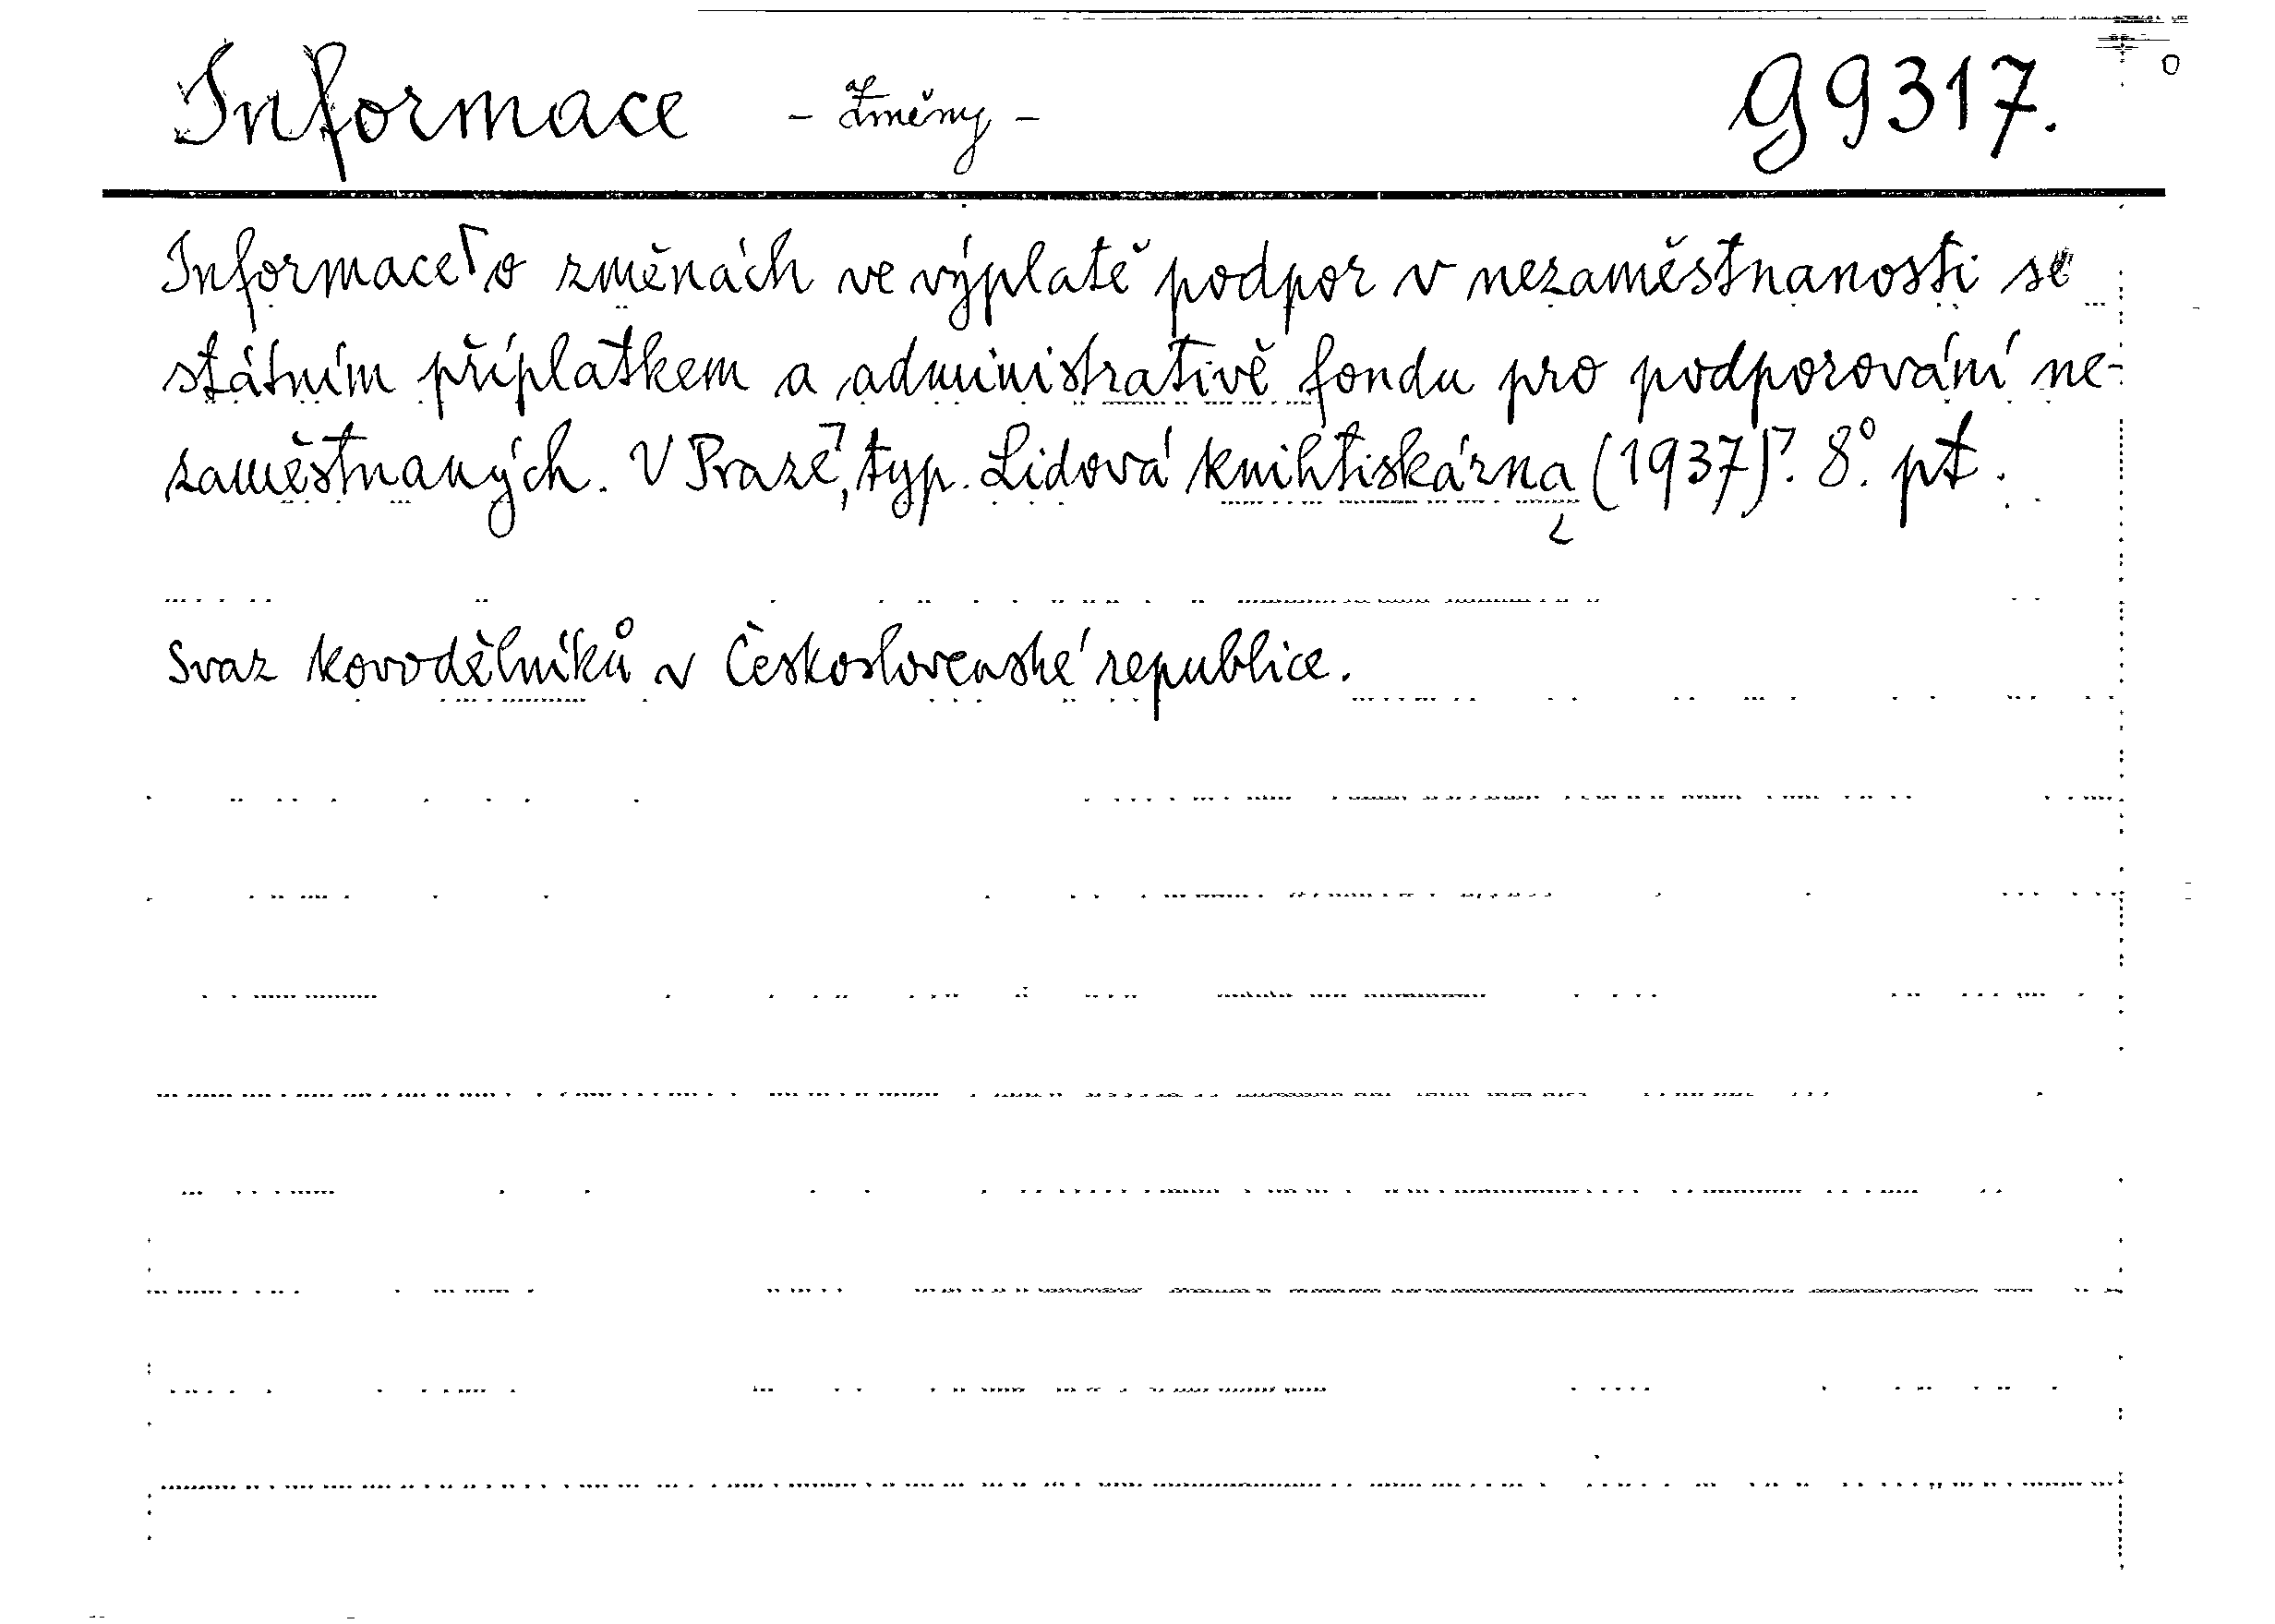 Informace - změny - G 9317.
Informace o změnách ve výplatě podpor v nezaměstnanosti se
státním příplatkem a administrativě fondu pro podporování ne-
zaměstnaných. V Praze, typ. Lidová knihtiskárna (1937)?. 8° př.
Svaz kovodělníků v Československé republice.